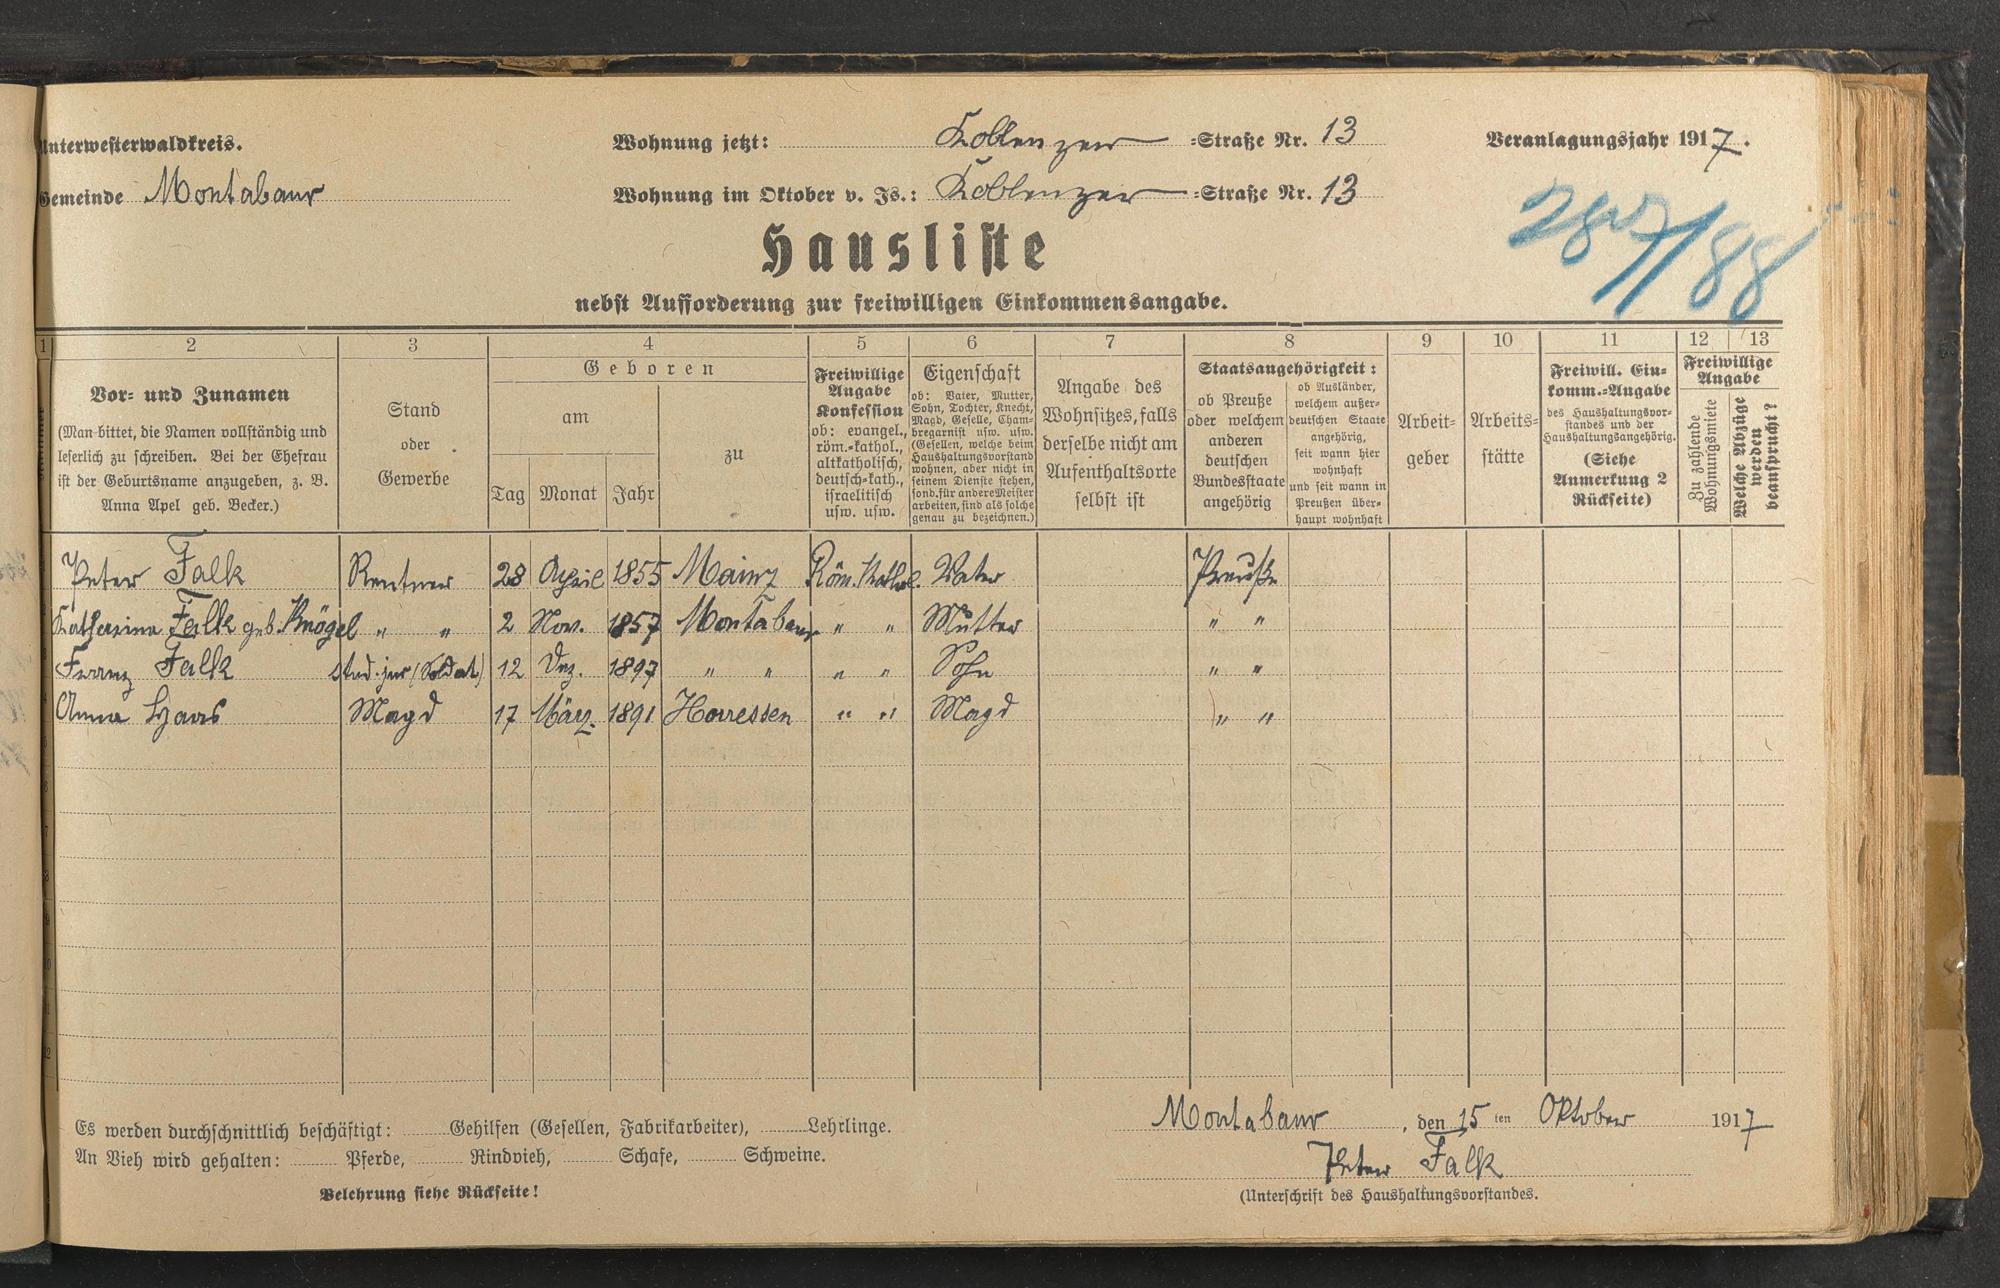 Unterwesterwaldkreis.
Wohnung jetzt: Koblenzer =Straße Nr. 13
Veranlagungsjahr 1917.
Gemeinde Montabaur
Wohnung im Oktober v. Js.: Koblenzer =Straße Nr. 13
Hausliste
nebst Aufforderung zur freiwilligen Einkommensangabe.
1 2 3 4 5 6 7 8 9 10 11 12 13
Vor- und Zunamen
(Man bittet, die Namen vollständig und
leserlich zu schreiben. Bei der Ehefrau
ist der Geburtsname anzugeben, z. B.
Anna Apel geb. Becker.)
Stand
oder
Gewerbe
Geboren
am
Tag Monat Jahr
zu
Freiwillige
Angabe
Konfession
ob: evangel.,
röm.=kathol.,
altkatholisch,
deutsch=kath.,
israelitisch
usw. usw.
Eigenschaft
ob: Vater, Mutter,
Sohn, Tochter, Knecht,
Magd, Geselle, Cham-
bregarnist usw. usw.
(Gesellen, welche beim
Haushaltungsvorstand
wohnen, aber nicht in
seinem Dienste stehen,
sond. für andere Meister
arbeiten, sind als solche
genau zu bezeichnen.)
Angabe des
Wohnsitzes, falls
derselbe nicht am
Aufenthaltsorte
selbst ist
Staatsangehörigkeit:
ob Preuße
oder welchem
anderen
deutschen
Bundesstaate
angehörig
ob Ausländer,
welchem außer-
deutschen Staate
angehörig,
seit wann hier
wohnhaft
und seit wann in
Preußen über-
haupt wohnhaft
Arbeit=
geber
Arbeits=
stätte
Freiwill. Ein=
komm.=Angabe
des Haushaltungsvor-
standes und der
Haushaltungsangehörig.
(Siehe
Anmerkung 2
Rückseite)
Freiwillige
Angabe
Zu zahlende
Wohnungsmiete
Welche Abzüge
werden
beansprucht?
Peter Falk Rentner 28 April 1855 Mainz Röm. Kathol. Vater Preuße
Katharina Falk geb. Knögel " " 2 Nov. 1857 Montabaur " " Mutter " "
Franz Falk stud. jur (Soldat) 12 Dez. 1897 " " " " Sohn " "
Anna Haas Magd 17 März. 1891 Horressen " " Magd " "
Es werden durchschnittlich beschäftigt: Gehilfen (Gesellen, Fabrikarbeiter), Lehrlinge.
An Vieh wird gehalten: Pferde, Rindvieh, Schafe, Schweine.
Belehrung siehe Rückseite!
Montabaur, den 15 ten Oktober 1917
Peter Falk
(Unterschrift des Haushaltungsvorstandes.